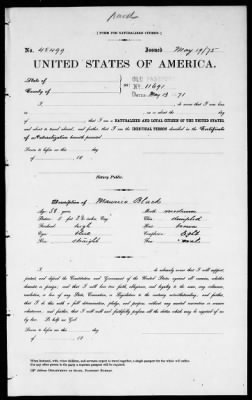 [ FORM FOR NATURALIZED CITIZEN ]
No. 48499 Issued May 19/75
UNITED STATES OF AMERICA.
State of
County of
OLD PASSPORT
No 11691
DATED May 13 71
I, , do swear that I was born
in , on or about the day
of ; that I am a NATURALIZED AND LOYAL CITIZEN OF THE UNITED STATES,
and about to travel abroad; and further, that I am the IDENTICAL PERSON described in the Certificate
of Naturalization herewith presented.
Sworn to before me, this day
of , 18
Notary Public.
Description of Maurice Black
Age: 58 years Mouth: medium
Stature: 5 feet 2 1/2 inches, Eng. Chin: dimpled
Forehead: high Hair: brown
Eyes: blue Complexion: light
Nose: straight Face: oval
I, , do solemnly swear that I will support,
protect, and defend the Constitution and Government of the United States against all enemies, whether
domestic or foreign; and that I will bear true faith, allegiance, and loyalty to the same, any ordinance,
resolution, or law of any State, Convention, or Legislature to the contrary notwithstanding; and further,
that I do this with a full determination, pledge, and purpose, without any mental reservation or evasion
whatsoever; and further, that I will well and faithfully perform all the duties which may be required of me
by law: So help me God.
Sworn to before me, this day
of , 18
When husband, wife, minor children, and servants expect to travel together, a single passport for the whole will suffice.
For any other person in the party, a separate passport will be required.
Address DEPARTMENT OF STATE, PASSPORT BUREAU.